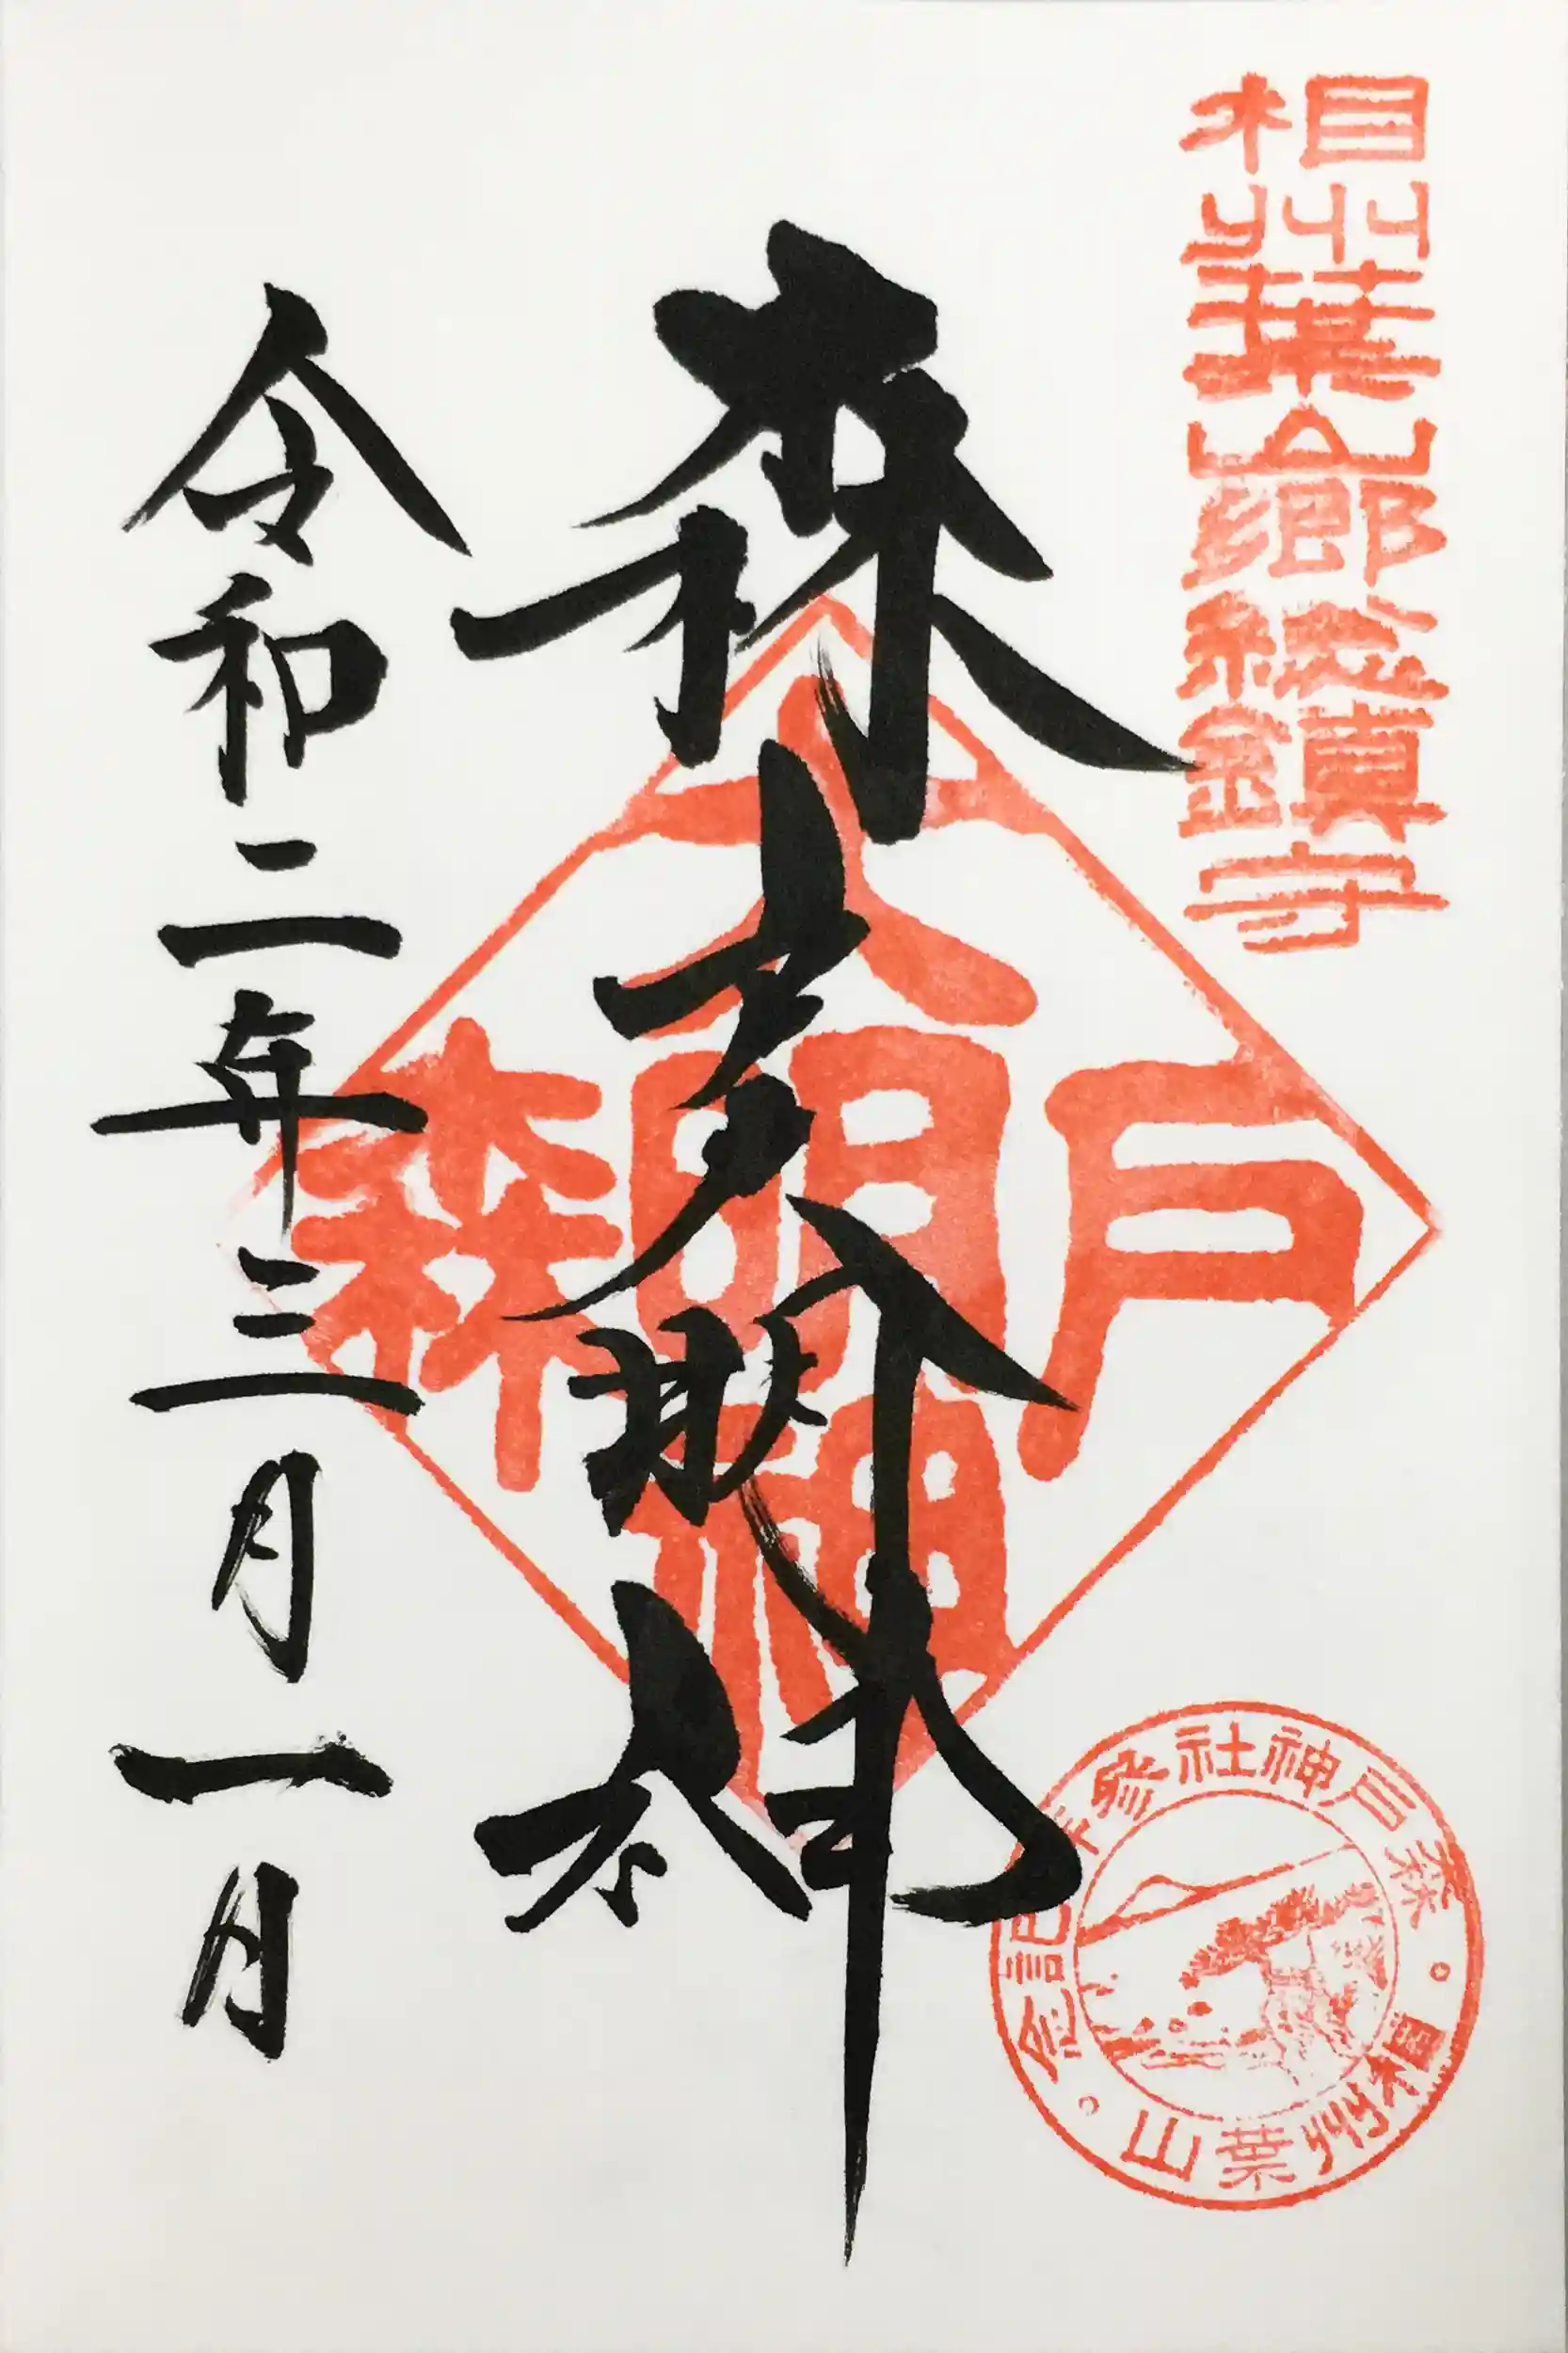 相州葉山郷総鎮守
森戸大明神
令和二年三月一日
大
森明戸
神
森戸神社参拝記念
相州葉山